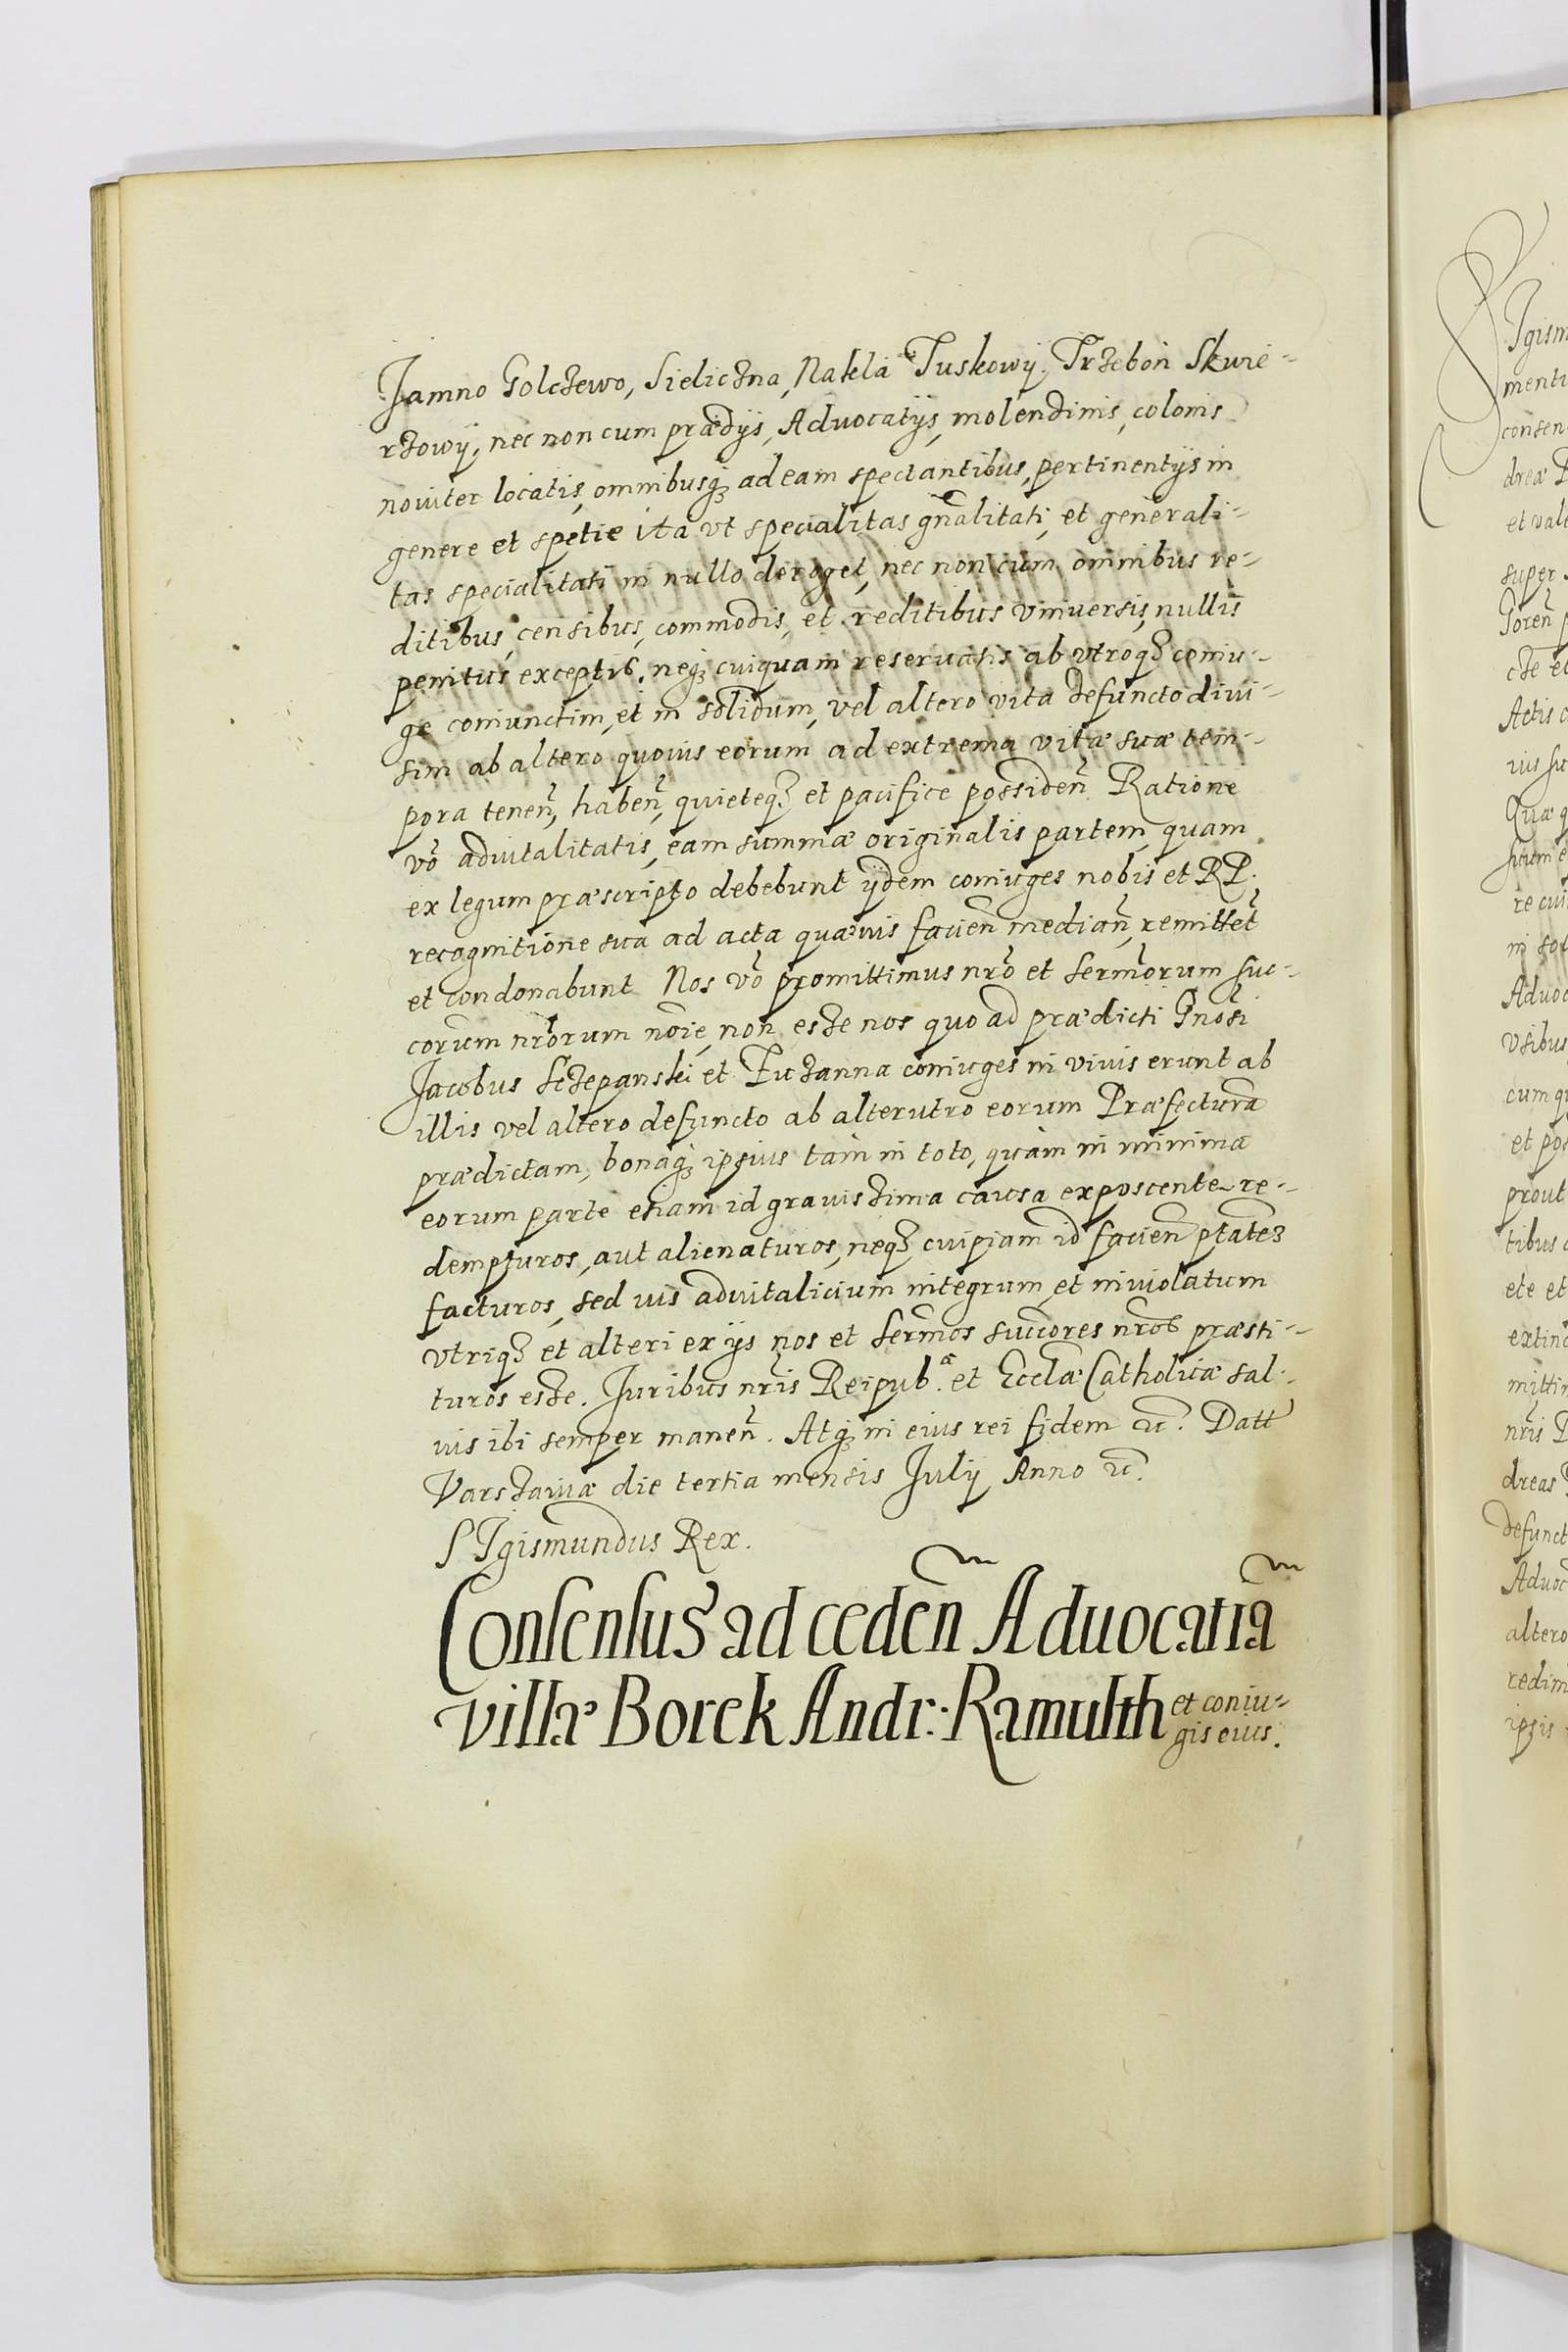 Jamno Golczewo, Sieliczna, Nakla Tuskowy. Trzebon Skwie-
rzowy, nec non cum prædijs, Advocatijs, molendinis, colonis
noviter locatis, omnibusq; ad eam spectantibus, pertinentijs in
genere et spetie ita vt specialitas gn̄alitati, et generali-
tas specialitati in nullo deroget, nec non cum omnibus re-
ditibus, censibus, commodis, et reditibus vniuersis, nullis
penitus exceptis, neq; cuiquam reseruatis ab vtroq; coniu-
ge coniunctim, et in solidum, vel altero vita defuncto diui-
sim ab altero quouis eorum ad extrema vitæ suæ tem-
pora tenen̄, haben̄, quieteq; et pacifice possiden̄. Ratione
vō aduitalitatis, eam summæ originalis partem, quam
ex legum præscripto debebunt ijdem coniuges nobis et RP.
recognitione sua ad acta quæuis facien̄ median̄, remittet̄
et condonabunt. Nos vō promittimus nrō et Sermōrum suc-
corum nrōrum noīe, non esse nos quo ad prædicti Gnōsi
Jacobus Sczepanski et Zuzanna coniuges in viuis erunt ab
illis vel altero defuncto ab alterutro eorum Præfecturā
prædictam, bonaq; ipsius tàm in toto, quàm in minima
eorum parte etiam id grauissima causa exposcente re-
dempturos, aut alienaturos, neq; cuipiam id facien̄ ptātem
facturos, sed ius aduitalicium integrum, et inuiolatum
vtriq; et alteri ex ijs nos et Sermōs succōres nrōs præsti-
turos esse. Juribus nrīs Reipub.ᵃ et Ecclāe Catholicæ sal-
uis ibi semper manen̄. Atq; in eius rei fidem etc̄. Datt
Varssauiæ die tertia mensis July Anno etc̄.
SIgismundus Rex.
Consensus ad ceden̄ Aduocatiā
villæ Borek Andr: Ramulth et coniu-
gis eius.